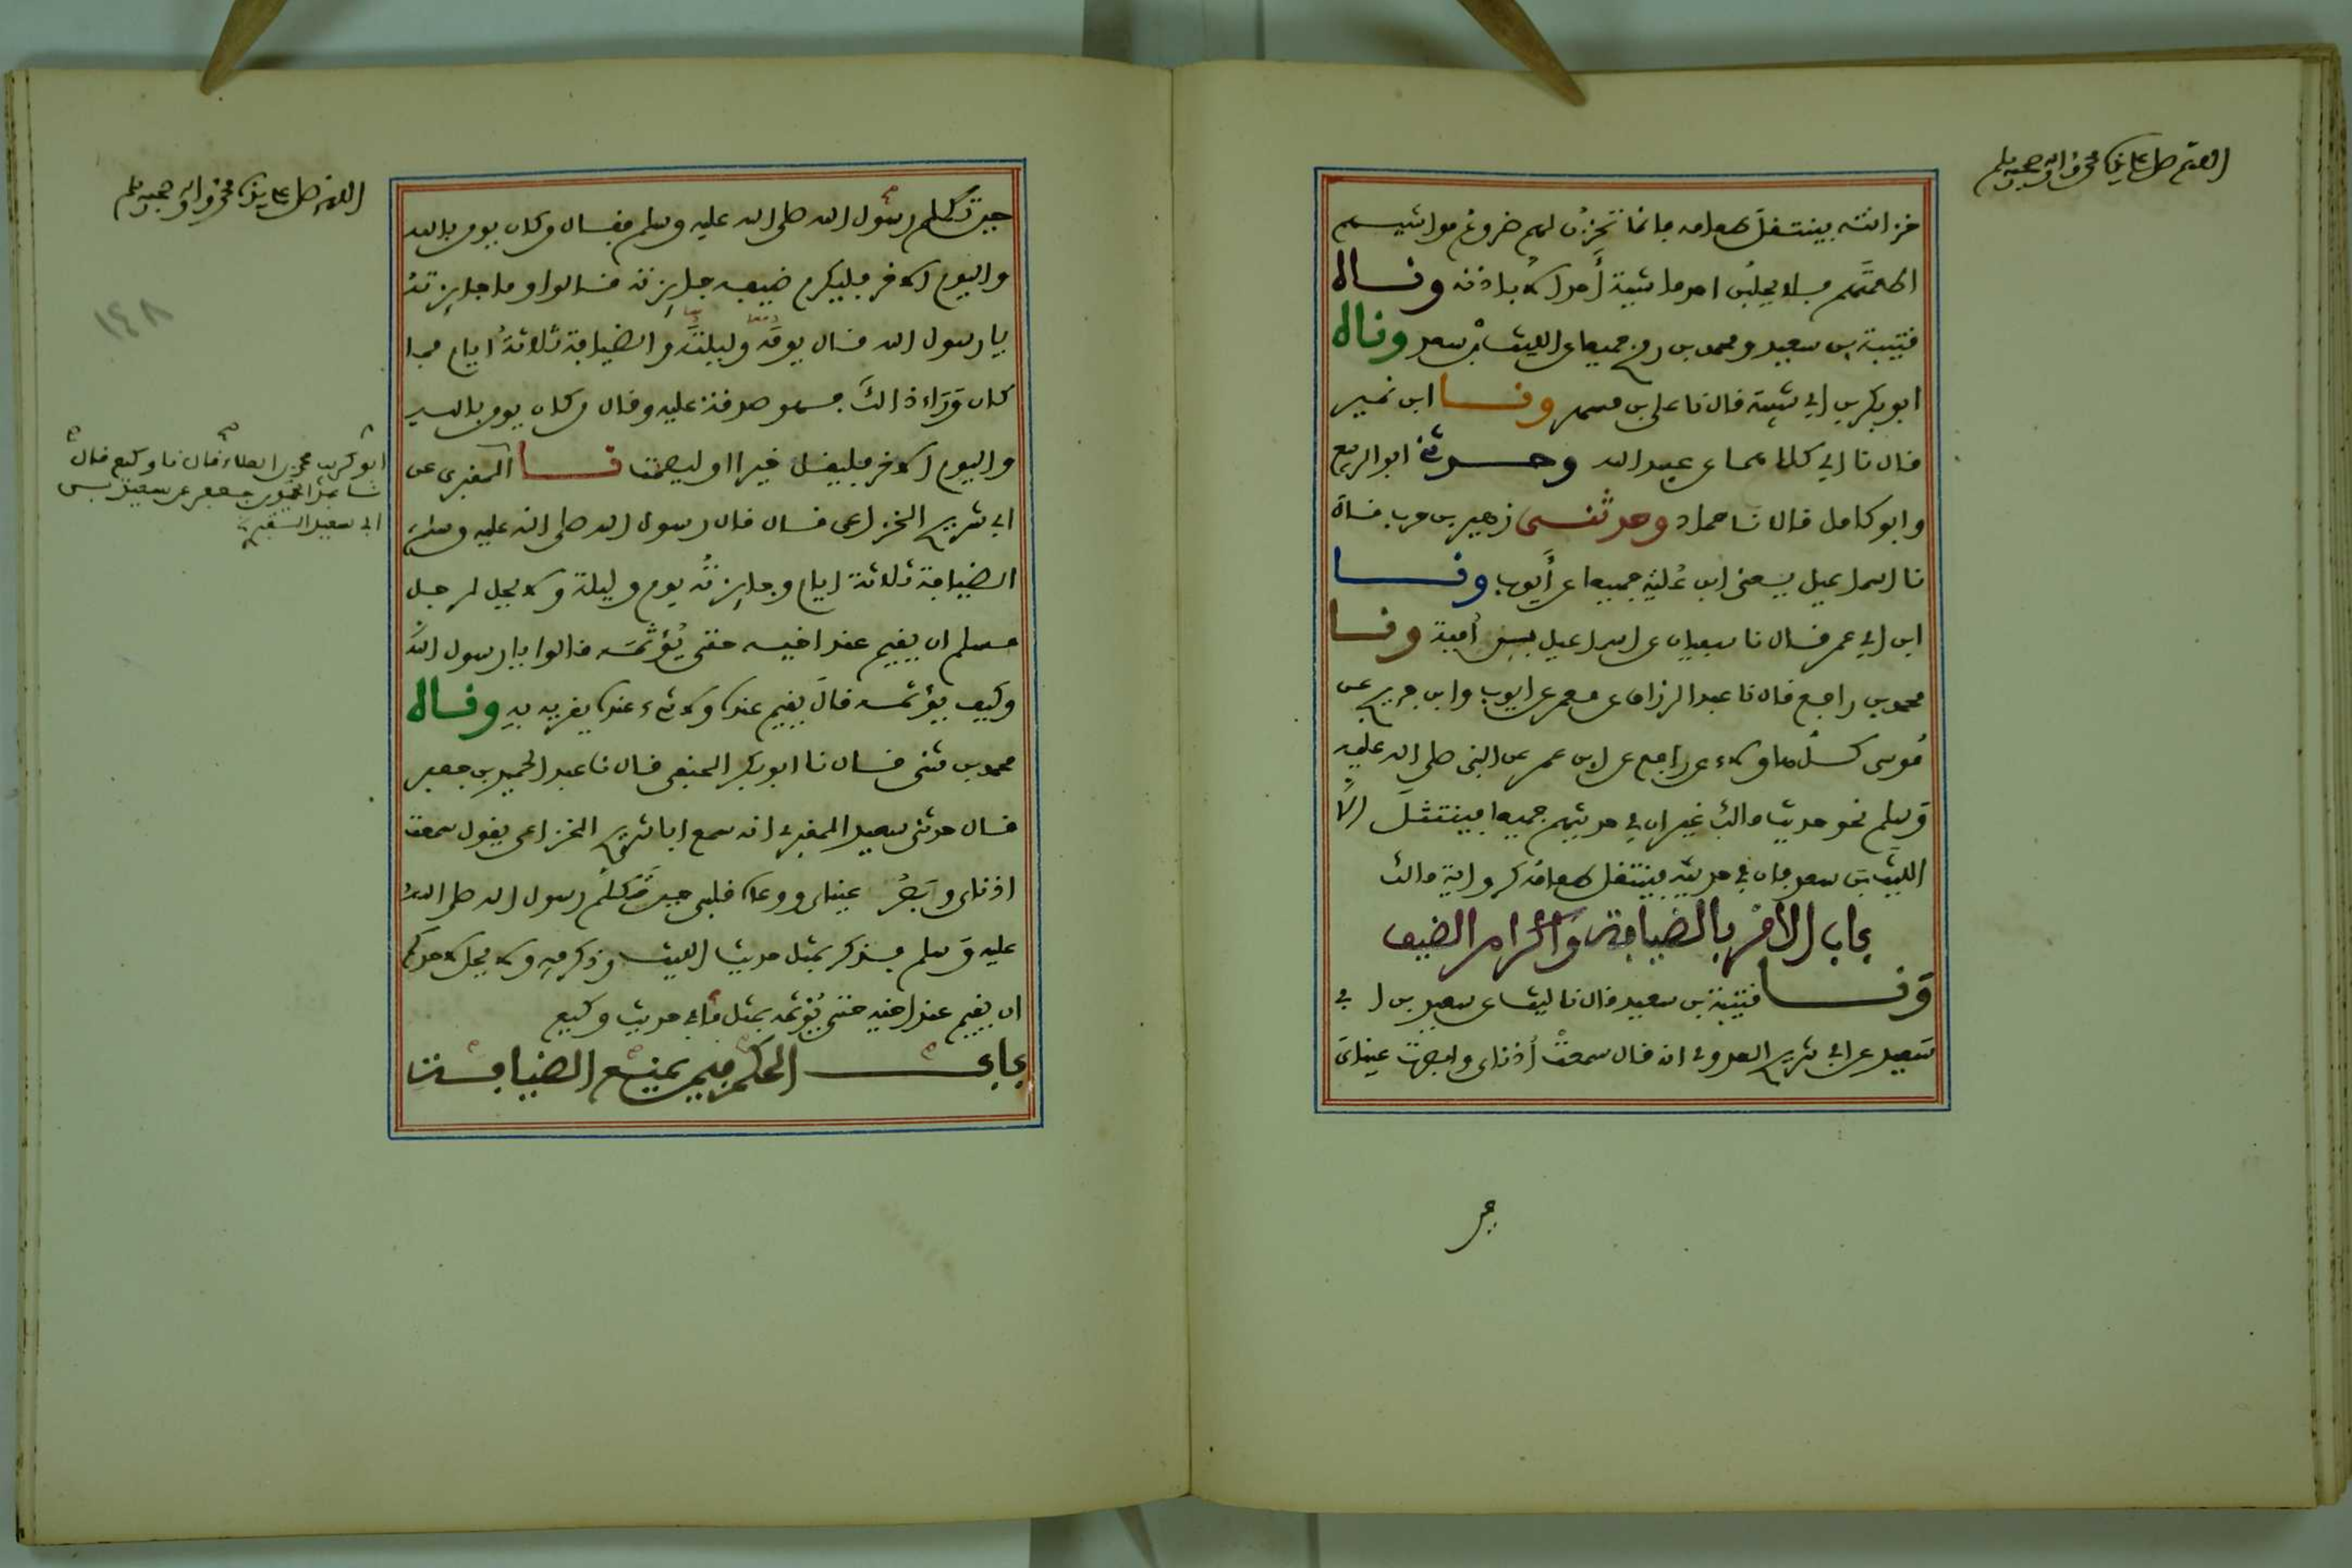 اللهم صل على سيدنا محمد واله وصحبه وسلم
خزانته فينتقل طعامه فانما تخزن لهم ضروع مواشيهم
اطعمتهم فلا يحلبن احد ماشية أحد الا باذنه وناه
قتيبة بن سعيد ومحمد بن رمح جميعا عن الليث بن سعد وناه
ابو بكر بن ابي شيبة قال نا علي بن مسهر ونا ابن نمير
قال نا ابي كلاهما عن عبيد الله وحدثني ابو الربيع
وابو كامل قالا نا حماد وحدثني زهير بن حرب قال
نا اسماعيل يعني ابن علية جميعا عن أيوب ونا
ابن ابي عمر قال نا سفيان عن اسماعيل بن أمية ونا
محمد بن رافع قال نا عبد الرزاق عن معمر عن ايوب وابن جريج عن
موسى كل هاولاء عن نافع عن ابن عمر عن النبي صلى الله عليه
وسلم نحو حديث مالك غير ان في حديثهم جميعا فينتثل الا
الليث بن سعد فان في حديثه فينتقل طعامه كرواية مالك
باب الأمر بالضيافة وإكرام الضيف
ونا قتيبة بن سعيد قال نا ليث عن سعيد بن ابي
سعيد عن ابي شريح العدوي انه قال سمعت أذناي وابصرت عيناي
اللهم صل على سيدنا محمد واله وصحبه وسلم
١٤٨
حين تكلم رسول الله صلى الله عليه وسلم فقال من كان يومن بالله
واليوم الاخر فليكرم ضيفه جايزته قالوا وما جايزته
يا رسول الله قال يومه وليلته والضيافة ثلاثة أيام فما
كان وراء ذالك فهو صدقة عليه وقال من كان يومن بالله
واليوم الاخر فليقل خيرا او ليصمت نا المقبري عن
ابي شريح الخزاعي قال قال رسول الله صلى الله عليه وسلم
الضيافة ثلاثة ايام وجايزته يوم وليلة ولا يحل لرجل
مسلم ان يقيم عند اخيه حتى يؤثمه قالوا يا رسول الله
وكيف يؤثمه قال يقيم عنده ولا شيء عنده يقريه به وناه
محمد بن مثنى قال نا ابو بكر الحنفي قال نا عبد الحميد بن جعفر
قال حدثني سعيد المقبري انه سمع ابا شريح الخزاعي يقول سمعت
اذناي وبصر عيناي ووعاه قلبي حين تكلم رسول الله صلى الله
عليه وسلم فذكر بمثل حديث الليث وذكر فيه ولا يحل لاحدكم
ان يقيم عند اخيه حتى يؤثمه بمثل ما في حديث وكيع
باب الحكم فيمن منع الضيافة
ابو كريب محمد بن العلاء قال نا وكيع قال
نا عبد الحميد بن جعفر عن سعيد بن
ابي سعيد المقبري